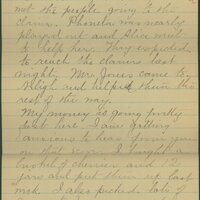 not the people going to the
claim. Phoneta was nearly
played out and Alice went
to help her. They expected
to reach the claims last
night. Mr. Jones came to
Neligh and helped them the
rest of the way.
My money is going pretty
fast here. I am getting
anxious to hear from you
on that score. I bought a
bushel of cherries and 12
jars and put them up last
wek. I also picked lots of